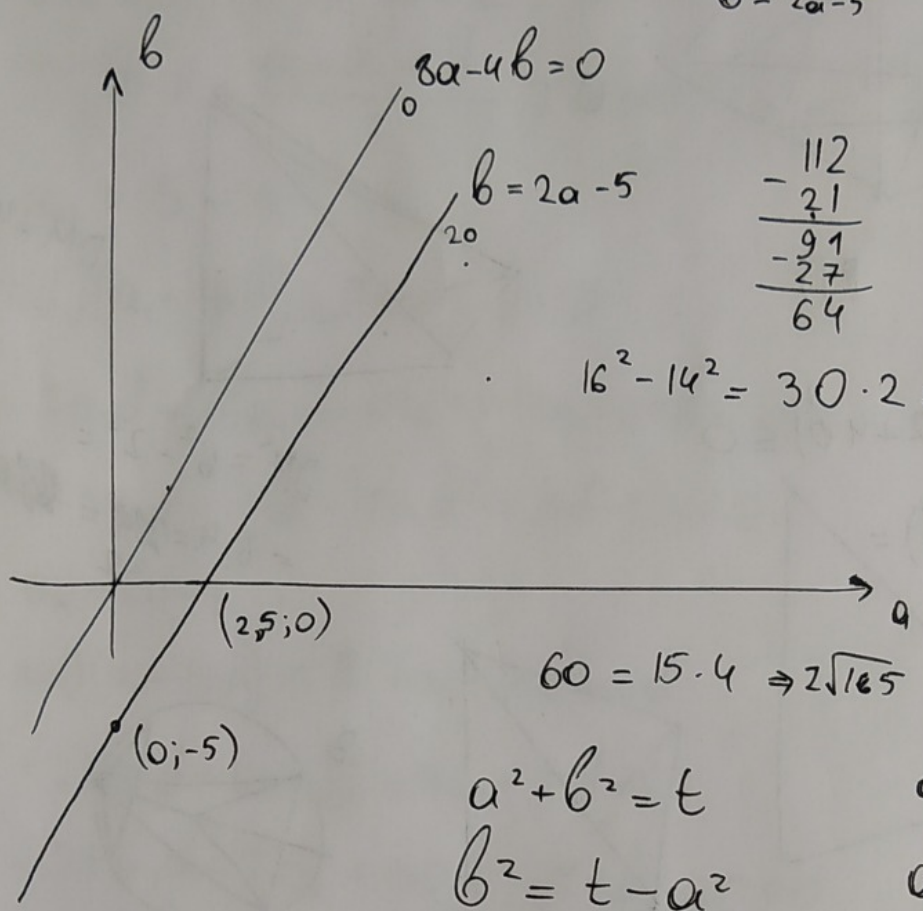 b
8a-4b=0
0
b=2a-5
20
112
- 21
91
- 27
64
16² - 14² = 30·2
(2,5;0)
a
60 = 15·4 ⇒
(0;-5)
a²+b²=t
b²=t-a²